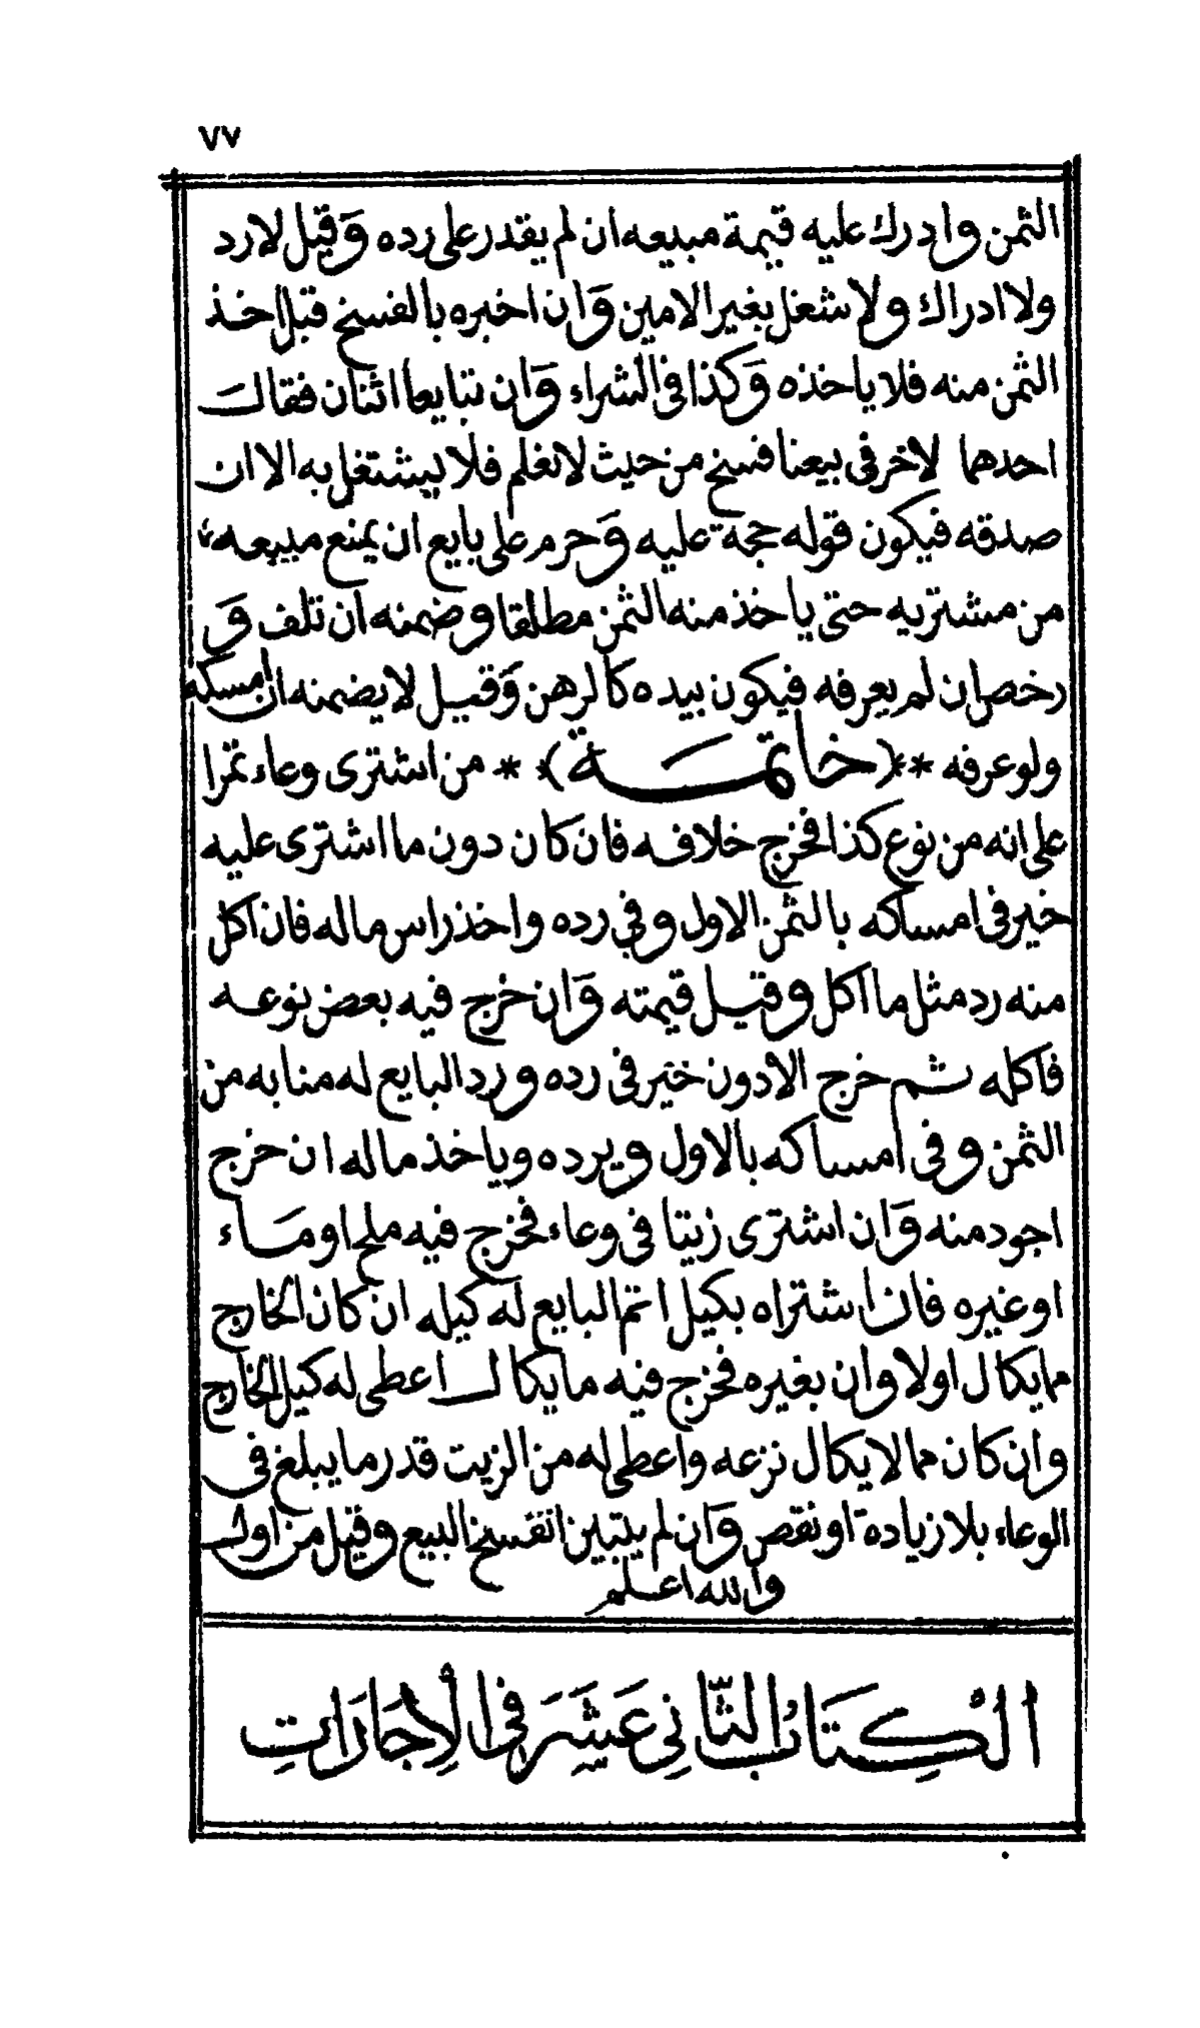 ٧٧
الثمن وادرك عليه قيمة مبيعه ان لم يقدر على رده وقيل لا رد
ولا ادراك ولا شغل بغير الامين وان اخبره بالفسخ قبل اخذ
الثمن منه فلا ياخذه وكذا فى الشراء وان تبايعا اثنان فقال
احدهما لاخر فى بيعنا فسخ من حيث لا نعلم فلا يشتغل به الا ان
صدقه فيكون قوله حجة عليه وحرم على بايع ان يمنع مبيعه
من مشتريه حتى ياخذ منه الثمن مطلقا وضمنه ان تلف و
رخص ان لم يعرفه فيكون بيده كالرهن وقيل لا يضمنه ان امسكه
ولو عرفه ** (خاتمـــة) * من اشترى وعاء تمرا
على انه من نوع كذا فخرج خلافه فان كان دون ما اشترى عليه
خير فى امساكه بالثمن الاول وفي رده واخذ راس ماله فان اكل
منه رد مثل ما اكل وقيل قيمته وان خرج فيه بعض نوعه
فاكله ثم خرج الادون خير فى رده ورد البايع له منابه من
الثمن وفى امساكه بالاول ويرده وياخذ ماله ان خرج
اجود منه وان اشترى زيتا فى وعاء فخرج فيه ملح او ماء
او غيره فان اشتراه بكيل اتم البايع له كيله ان كان الخارج
مما يكال اولا وان بغيره فخرج فيه ما يكال اعطى له كيل الخارج
وان كان مما لا يكال نزعه واعطى له من الزيت قدر ما يبلغ فى
الوعاء بلا زيادة او نقص وان لم يتبين انفسخ البيع وقيل من اول
والله اعلم
الْكِتَابُ الثَّانِي عَشَرَ فِي الْأِجَارَاتِ